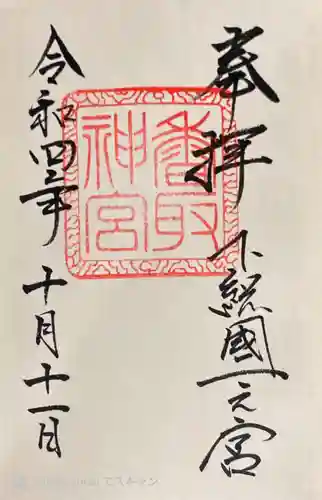 奉拝
下総國一之宮
香取神宮
令和四年十月十一日
でスキャン